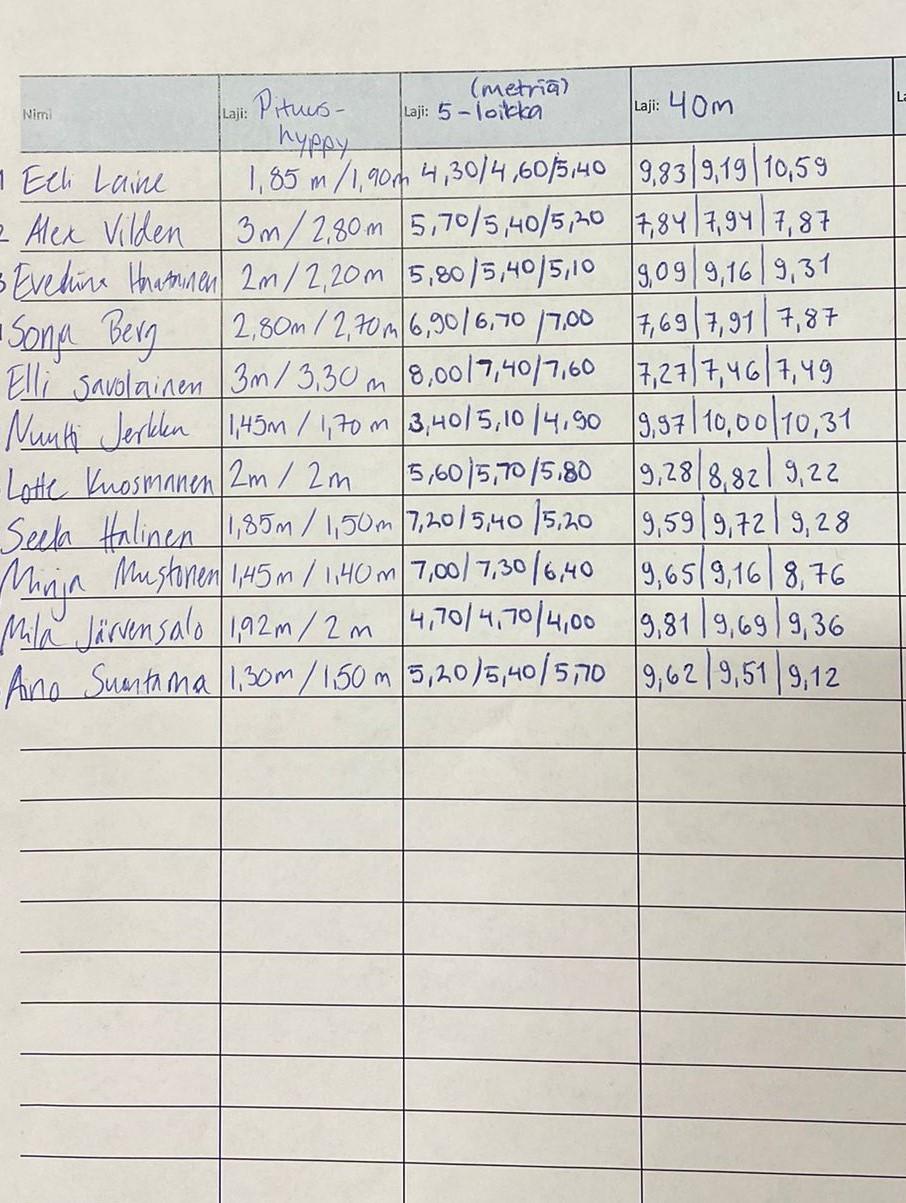 Nimi Laji: Pituus- hyppy Laji: 5-loikka (metriä) Laji: 40m
Eeli Laine 1,85 m/1,90m 4,30/4,60/5,40 9,83|9,19|10,59
2 Alex Vilden 3m/2,80m 5,70/5,40/5,20 7,84|7,94|7,87
3 Eveliina 2m/2,20m 5,80/5,40/5,10 9,09|9,16|9,31
Sonja Berg 2,80m/2,70m 6,90/6,70/7,00 7,69|7,91|7,87
Elli Savolainen 3m/3,30m 8,00/7,40/7,60 7,27|7,46|7,49
Nuutti Jerkku 1,45m/1,70m 3,40/5,10/4,90 9,97|10,00|10,31
Lotte Kuosmanen 2m/2m 5,60/5,70/5,80 9,28|8,82|9,22
Seela Halinen 1,85m/1,50m 7,20/5,40/5,20 9,59|9,72|9,28
Minja Mustonen 1,45m/1,40m 7,00/7,30/6,40 9,65|9,16|8,76
Mila Järvensalo 1,92m/2m 4,70/4,70/4,00 9,81|9,69|9,36
Aino Suuntama 1,30m/1,50m 5,20/5,40/5,70 9,62|9,51|9,12